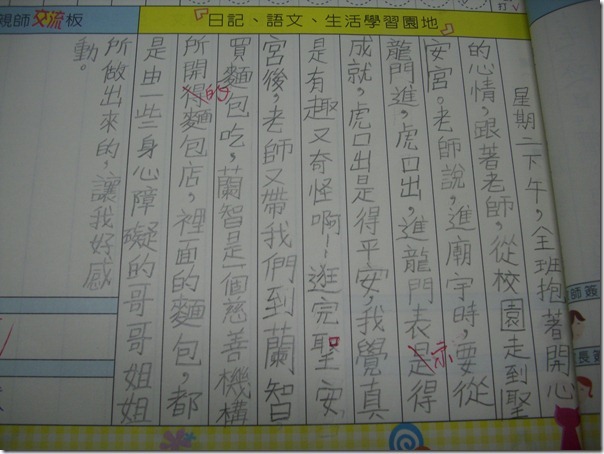 親師交流板
『日記、語文、生活學習園地』
星期二下午，全班抱著開心
的心情，跟著老師，從校園走到聖
安宮。老師說，進廟宇時，要從
龍門進，虎口出，進龍門表是示得
成就，虎口出是得平安，我覺真
是有趣又奇怪啊！逛完聖安
宮後，老師又帶我們到蘭智
買麵包吃，蘭智是一個慈善機構
所開得的麵包店，裡面的麵包，都
是由一些身心障礙的哥哥姐姐
所做出來的，讓我好感
動。
師簽